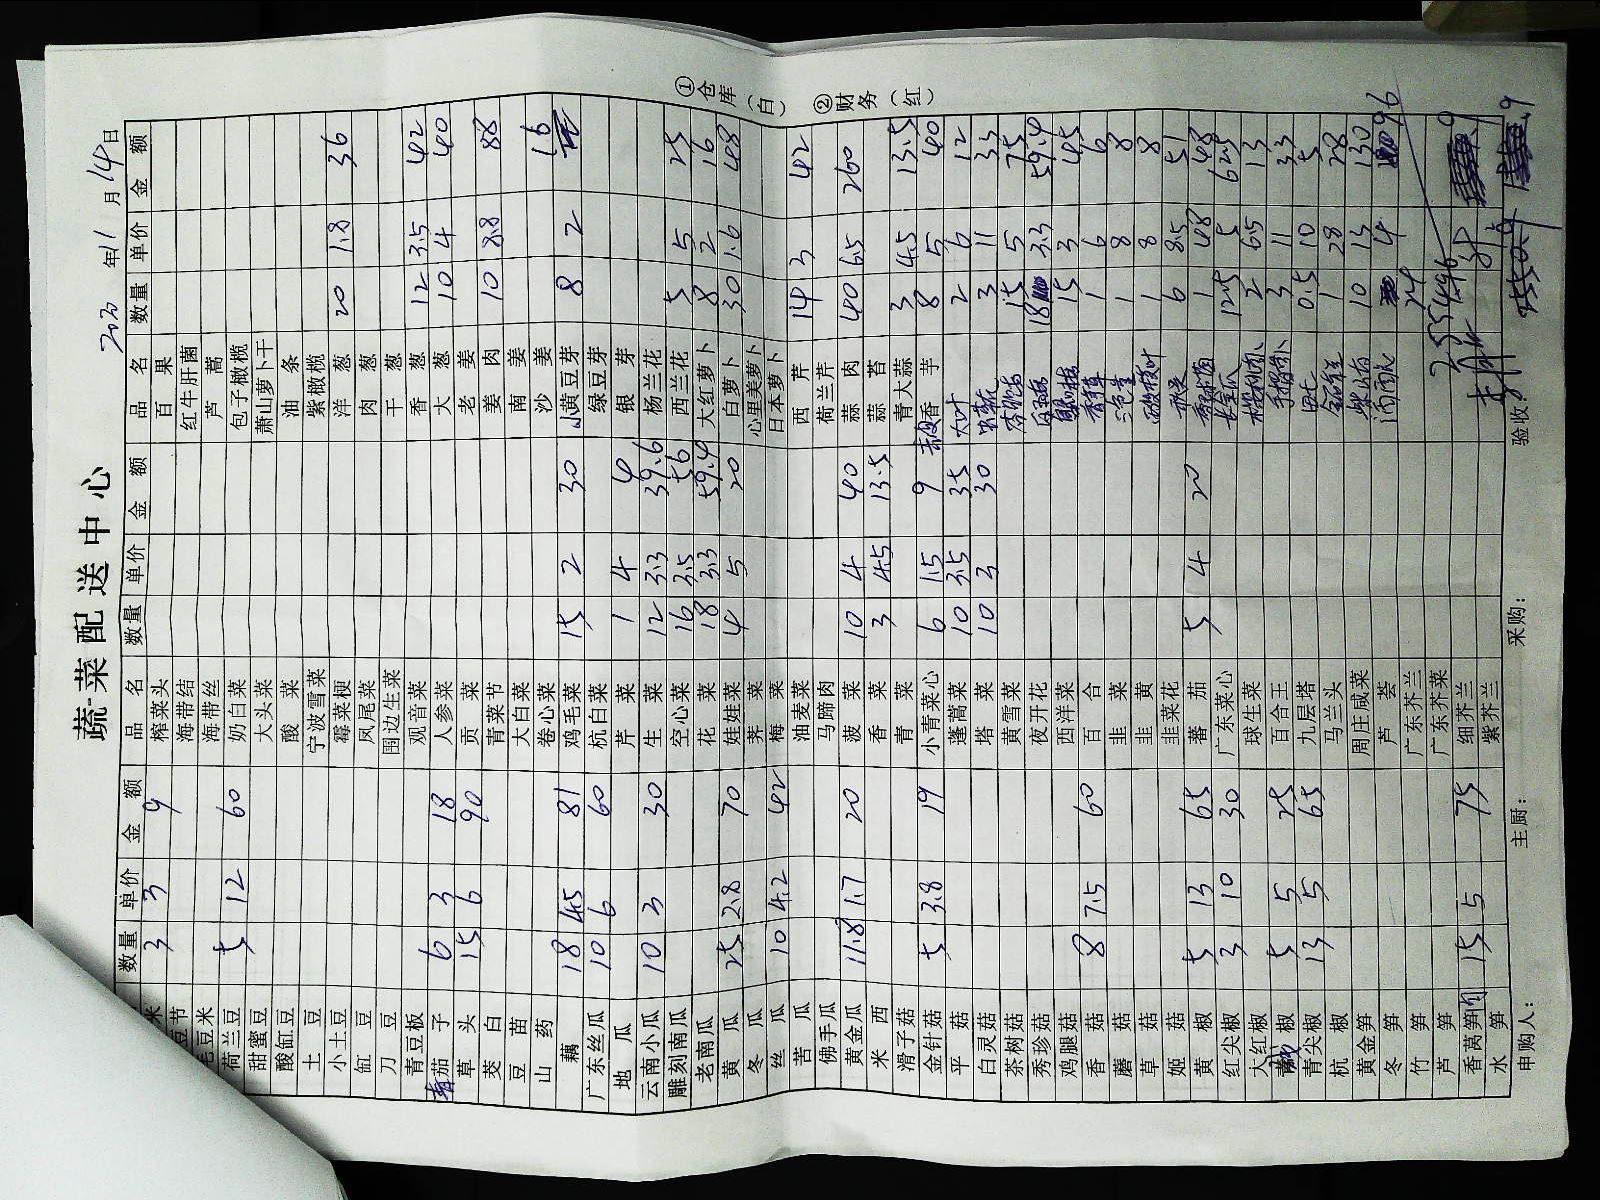 蔬菜配送中心
年11月14日
数量 单价 金额 品名 数量 单价 金额 品名 数量 单价 金额
米 3 3 9 榨菜头 百果
豆节 海带结 红牛肝菌
毛豆米 海带丝 芦蒿
荷兰豆 5 12 60 奶白菜 包子橄榄
甜蜜豆 大头菜 萧山萝卜干
酸缸豆 酸菜 油条
土豆 宁波雪菜 紫橄榄
小土豆 霉菜梗 洋葱 20 1.8 36
缸豆 凤尾菜 肉葱
刀豆 围边生菜 干葱
青豆板 观音菜 香葱 12 3.5 42
茄子 6 3 18 人参菜 大葱 10 4 40
草头 15 6 90 贡菜 老姜
茭白 青菜节 姜肉 10 8.8 88
豆苗 大白菜 南姜
山药 卷心菜 沙姜
藕 18 4.5 81 鸡毛菜 15 2 30 小黄豆芽 8 2 16
广东丝瓜 10 6 60 杭白菜 绿豆芽
地瓜 芹菜 1 4 4 银芽
云南小瓜 10 3 30 生菜 12 3.3 39.6 杨兰花
雕刻南瓜 空心菜 16 3.5 56 西兰花 5 5 25
老南瓜 花菜 18 3.3 59.4 大红萝卜 8 2 16
黄瓜 25 2.8 70 娃娃菜 4 5 20 白萝卜 30 1.6 48
冬瓜 荠菜 心里美萝卜
丝瓜 10 4.2 42 梅菜 日本萝卜
苦瓜 油麦菜 西芹 14 3 42
佛手瓜 马蹄肉 荷兰芹
黄金瓜 11.8 1.7 20 菠菜 10 4 40 蒜肉 40 6.5 260
米西 香菜 3 4.5 13.5 蒜苔
滑子菇 青菜 青大蒜 3 4.5 13.5
金针菇 5 3.8 19 小青菜心 6 1.5 9 香芋 8 5 40
平菇 蓬蒿菜 10 3.5 35 大叶 2 6 12
白灵菇 塔菜 10 3 30 3 11 33
茶树菇 黄雪菜 15 5 75
秀珍菇 夜开花 18 3.3 59.4
鸡腿菇 西洋菜 15 3 45
香菇 8 7.5 60 百合 香草 1 6 6
蘑菇 韭菜 三色堇 1 8 8
草菇 韭黄 1 8 8
姬菇 韭菜花 6 8.5 51
黄椒 5 13 65 蕃茄 5 4 20 1 48 48
红尖椒 3 10 30 广东菜心 12.5 5 62.5
大红椒 球生菜 2 6.5 13
椒 5 5 25 百合王 3 11 33
青尖椒 13 5 65 九层塔 0.5 10 5
杭椒 马兰头 1 28 28
黄金笋 周庄咸菜 10 13 130
冬笋 芦荟 24 4 96
竹笋 广东芥兰
芦笋 广东芥菜
香莴笋 15 5 75 细芥兰
水笋 紫芥兰
申购人： 主厨： 采购： 验收：
①仓库（白） ②财务（红）